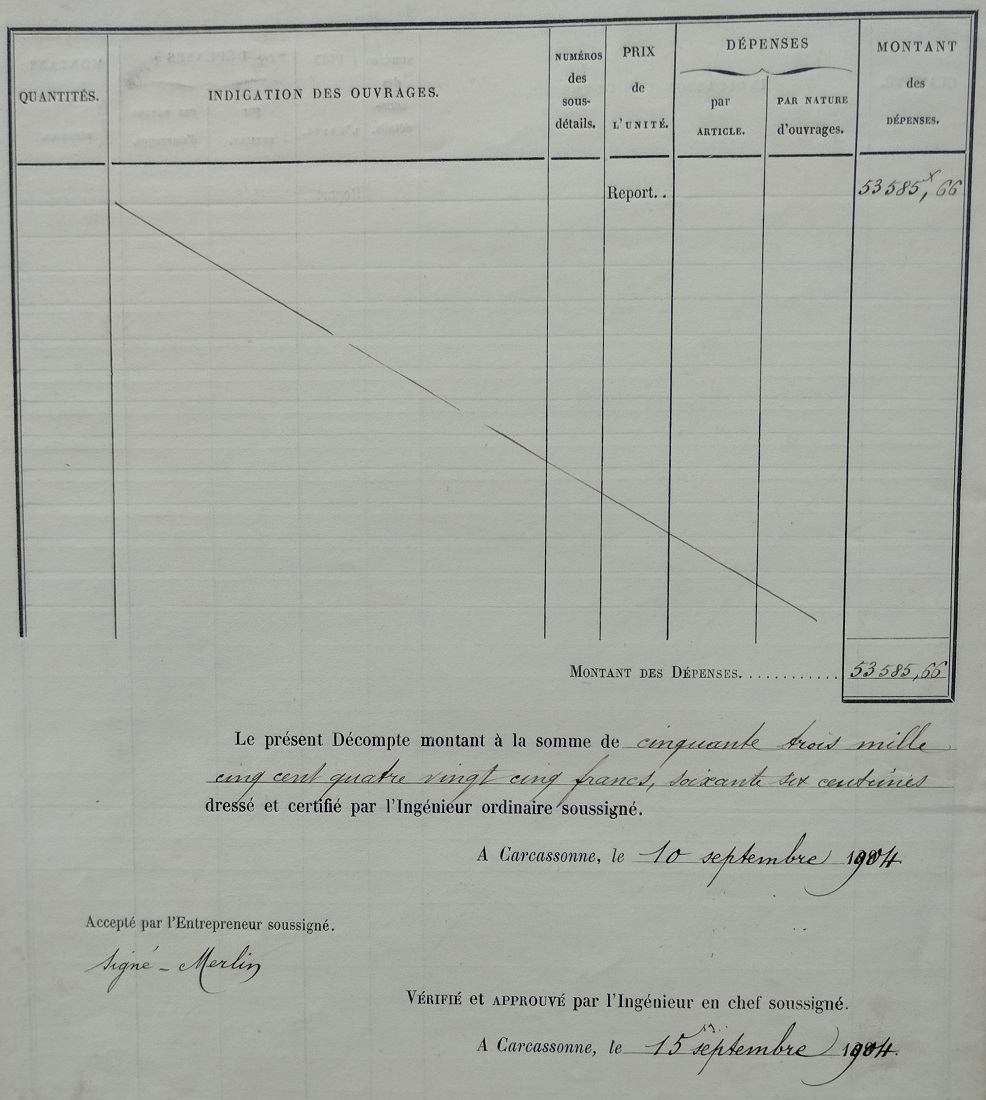 QUANTITÉS.
INDICATION DES OUVRAGES.
NUMÉROS
des
sous-
détails.
PRIX
de
L'UNITÉ.
DÉPENSES
par
ARTICLE.
PAR NATURE
d'ouvrages.
MONTANT
des
DÉPENSES.
Report. . 53 585, 66
MONTANT DES DÉPENSES. . . . . . . . . . . . 53 585, 66
Le présent Décompte montant à la somme de cinquante trois mille
cinq cent quatre vingt cinq francs, soixante six centimes
dressé et certifié par l'Ingénieur ordinaire soussigné.
A CARCASSONNE, le 10 septembre 1904
Accepté par l'Entrepreneur soussigné.
signé - Merlin
VÉRIFIÉ et APPROUVÉ par l'Ingénieur en chef soussigné.
A CARCASSONNE, le 15 septembre 1904.